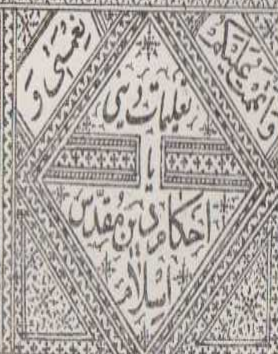 وَاَتْمَمْتُ عَلَیْکُمْ
نِعْمَتی وَ
تعلیمات دینی
یا
احکام دین مُقدّس
اسلام